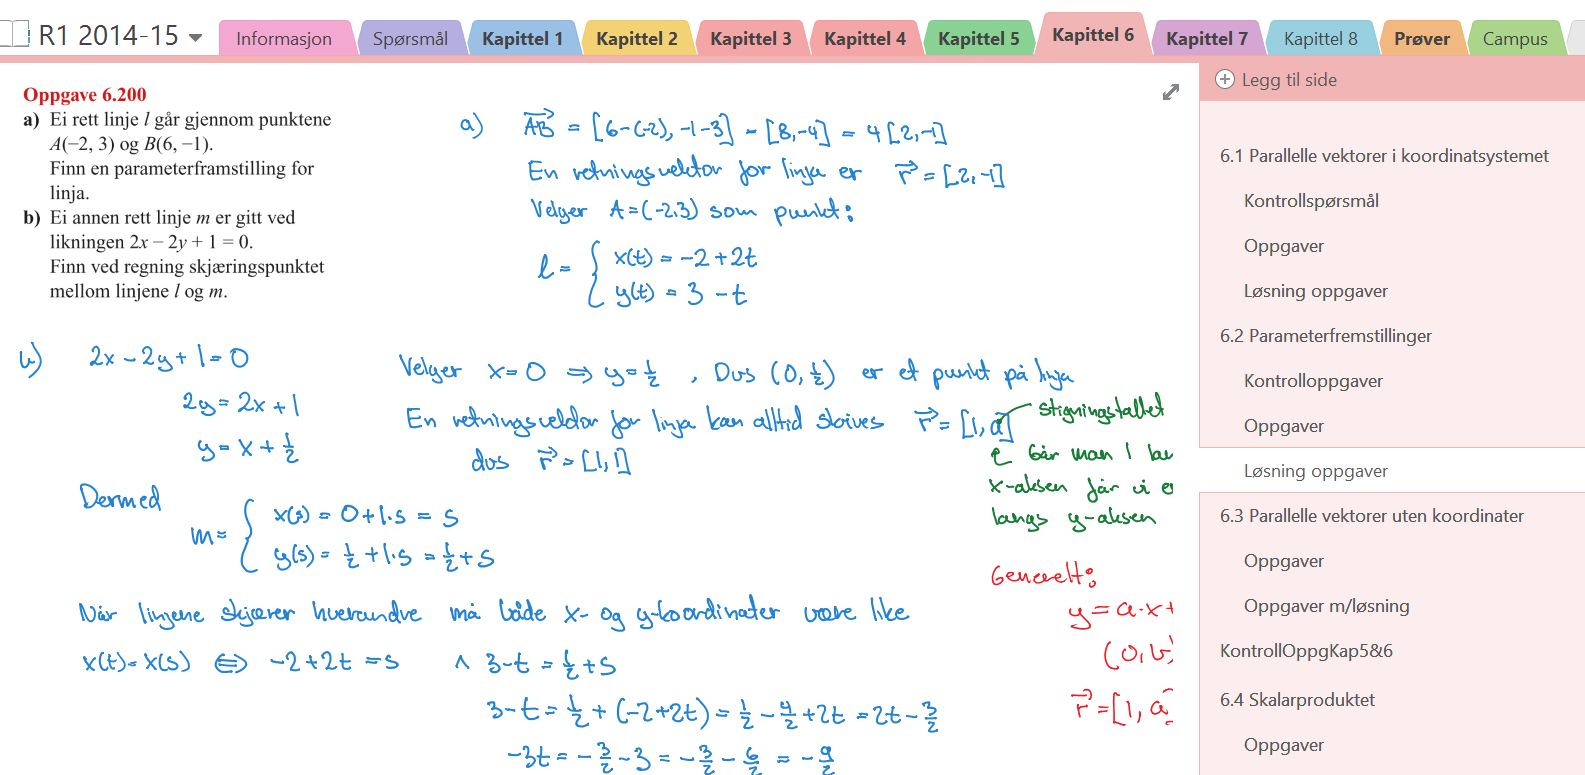 R1 2014-15
Informasjon
Spørsmål
Kapittel 1
Kapittel 2
Kapittel 3
Kapittel 4
Kapittel 5
Kapittel 6
Kapittel 7
Kapittel 8
Prøver
Campus
Oppgave 6.200
a) Ei rett linje l går gjennom punktene
A(−2, 3) og B(6, −1).
Finn en parameterframstilling for
linja.
b) Ei annen rett linje m er gitt ved
likningen 2x − 2y + 1 = 0.
Finn ved regning skjæringspunktet
mellom linjene l og m.
a) AB = [6-(-2), -1-3] = [8,-4] = 4[2,-1]
En retningsvektor for linja er r = [2,-1]
Velger A=(-2,3) som punkt:
l = { x(t) = -2+2t
y(t) = 3 - t
b) 2x - 2y + 1 = 0
2y = 2x + 1
y = x + 1/2
Velger x = 0 ⇒ y = 1/2 , Dvs (0, 1/2) er et punkt på linja
En retningsvektor for linja kan alltid skrives r = [1, a]
dvs r = [1,1]
stigningstallet
Går man 1 la
x-aksen får vi a
langs y-aksen
Dermed
m = { x(s) = 0+1·s = s
y(s) = 1/2 + 1·s = 1/2 + s
Generelt:
y = a·x+
(0, b)
r = [1, a]
Når linjene skjærer hverandre må både x- og y-koordinater være like
x(t) = x(s) ⇔ -2+2t = s ∧ 3-t = 1/2 + s
3-t = 1/2 + (-2+2t) = 1/2 - 4/2 + 2t = 2t - 3/2
-3t = -3/2 - 3 = -3/2 - 6/2 = -9/2
Legg til side
6.1 Parallelle vektorer i koordinatsystemet
Kontrollspørsmål
Oppgaver
Løsning oppgaver
6.2 Parameterfremstillinger
Kontrolloppgaver
Oppgaver
Løsning oppgaver
6.3 Parallelle vektorer uten koordinater
Oppgaver
Oppgaver m/løsning
KontrollOppgKap5&6
6.4 Skalarproduktet
Oppgaver